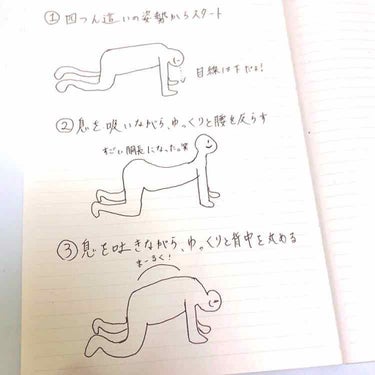 ① 四つん這いの姿勢からスタート
目線は下だよ!
② 息を吸いながら、ゆっくりと腰を反らす
すごい胴長になった。笑
③ 息を吐きながら、ゆっくりと背中を丸める
まーるく!